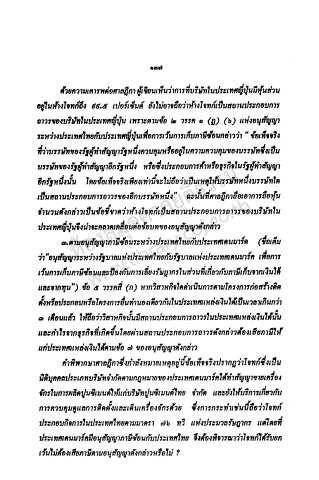 ๑๓๗
ด้วยความเคารพต่อศาลฎีกา ผู้เขียนเห็นว่าการที่บริษัทในประเทศญี่ปุ่นมีหุ้นส่วน
อยู่ในห้างโจทก์ถึง ๙๙.๕ เปอร์เซ็นต์ ยังไม่อาจถือว่าห้างโจทก์เป็นสถานประกอบการ
ถาวรของบริษัทในประเทศญี่ปุ่น เพราะตามข้อ ๒ วรรค ๑ (ฎ) (๖) แห่งอนุสัญญา
ระหว่างประเทศไทยกับประเทศญี่ปุ่นเพื่อการเว้นการเก็บภาษีซ้อนกล่าวว่า “ข้อเท็จจริง
ที่ว่าบริษัทของรัฐผู้ทำสัญญารัฐหนึ่งควบคุมหรืออยู่ในความควบคุมของบริษัทซึ่งเป็น
บริษัทของรัฐผู้ทำสัญญาอีกรัฐหนึ่ง หรือซึ่งประกอบการค้าหรือธุรกิจในรัฐผู้ทำสัญญา
อีกรัฐหนึ่งนั้น โดยข้อเท็จจริงเพียงเท่านี้จะไม่ถือว่าเป็นเหตุให้บริษัทหนึ่งบริษัทใด
เป็นสถานประกอบการถาวรของอีกบริษัทหนึ่ง” ฉะนั้นที่ศาลฎีกาถือเอาการถือหุ้น
จำนวนดังกล่าวเป็นข้อชี้ขาดว่าห้างโจทก์เป็นสถานประกอบการถาวรของบริษัทใน
ประเทศญี่ปุ่นจึงน่าจะคลาดเคลื่อนต่อข้อบทของอนุสัญญาดังกล่าว
๓.ตามอนุสัญญาภาษีซ้อนระหว่างประเทศไทยกับประเทศเดนมาร์ค (ชื่อเต็ม
ว่า “อนุสัญญาระหว่างรัฐบาลแห่งประเทศไทยกับรัฐบาลแห่งประเทศเดนมาร์ค เพื่อการ
เว้นการเก็บภาษีซ้อนและป้องกันการเลี่ยงรัษฎากรในส่วนที่เกี่ยวกับภาษีเก็บจากเงินได้
และจากทุน”) ข้อ ๕ วรรคสี่ (ก) หากวิสาหกิจใดดำเนินการตามโครงการก่อสร้างติด
ตั้งหรือประกอบหรือโครงการอื่นทำนองเดียวกันในประเทศแหล่งเงินได้เป็นเวลาเกินกว่า
๓ เดือนแล้ว ให้ถือว่าวิสาหกิจนั้นมีสถานประกอบการถาวรในประเทศแหล่งเงินได้นั้น
และกำไรจากธุรกิจที่เกิดขึ้นโดยผ่านสถานประกอบการถาวรดังกล่าวต้องเสียภาษีให้
แก่ประเทศแหล่งเงินได้ตามข้อ ๗ ของอนุสัญญาดังกล่าว
คำพิพากษาศาลฎีกาซึ่งกำลังหมายเหตุอยู่นี้ข้อเท็จจริงปรากฏว่าโจทก์ซึ่งเป็น
นิติบุคคลประเภทบริษัทจำกัดตามกฎหมายของประเทศเดนมาร์คได้ทำสัญญาขายเครื่อง
จักรในการผลิตปูนซิเมนต์ให้แก่บริษัทปูนซิเมนต์ไทย จำกัด และยังให้บริการเกี่ยวกับ
การควบคุมดูแลการติดตั้งและเดินเครื่องจักรด้วย ซึ่งการกระทำเช่นนี้ถือว่าโจทก์
ประกอบกิจการในประเทศไทยตามมาตรา ๗๖ ทวิ แห่งประมวลรัษฎากร แต่โดยที่
ประเทศเดนมาร์คมีอนุสัญญาภาษีซ้อนกับประเทศไทย จึงต้องพิจารณาว่าโจทก์ได้รับยก
เว้นไม่ต้องเสียภาษีตามอนุสัญญาดังกล่าวหรือไม่ ?